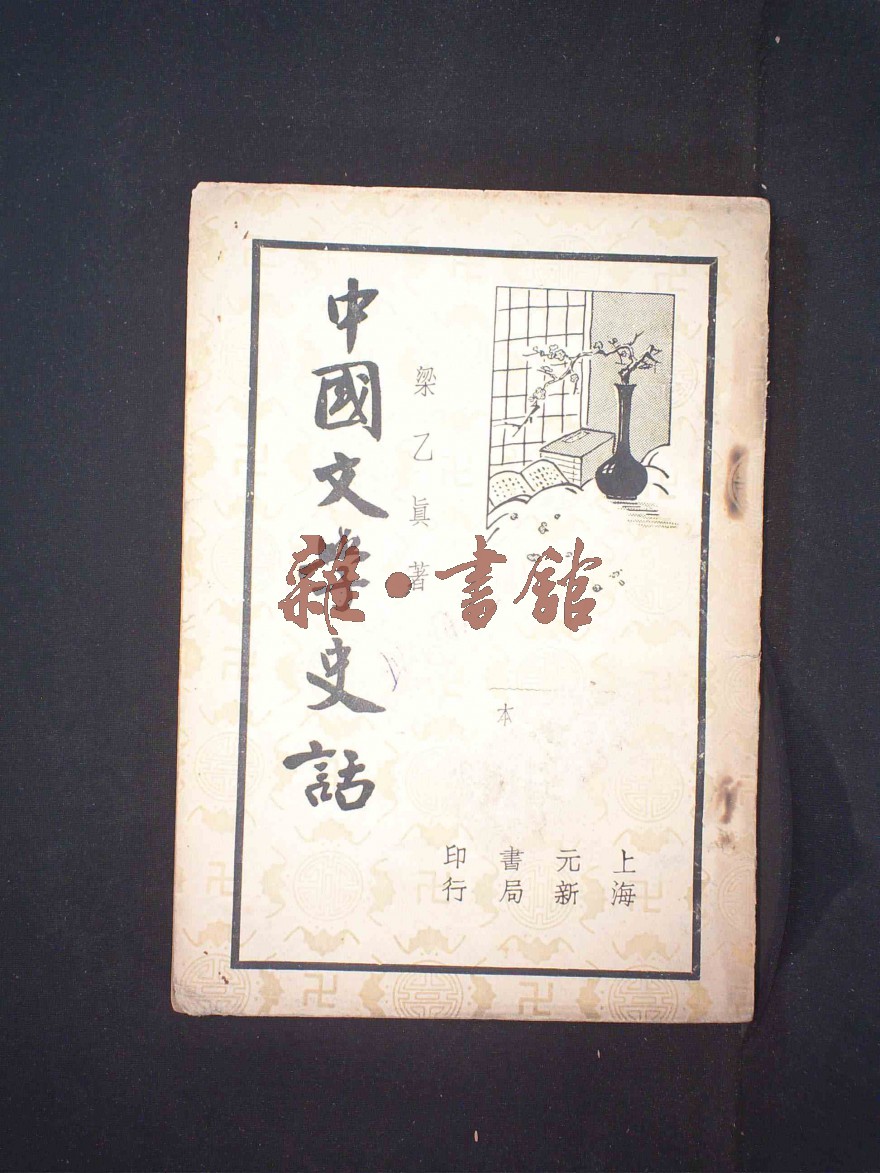 中國文學史話
梁乙眞著
雜·書館
本
上海
元新
書局
印行